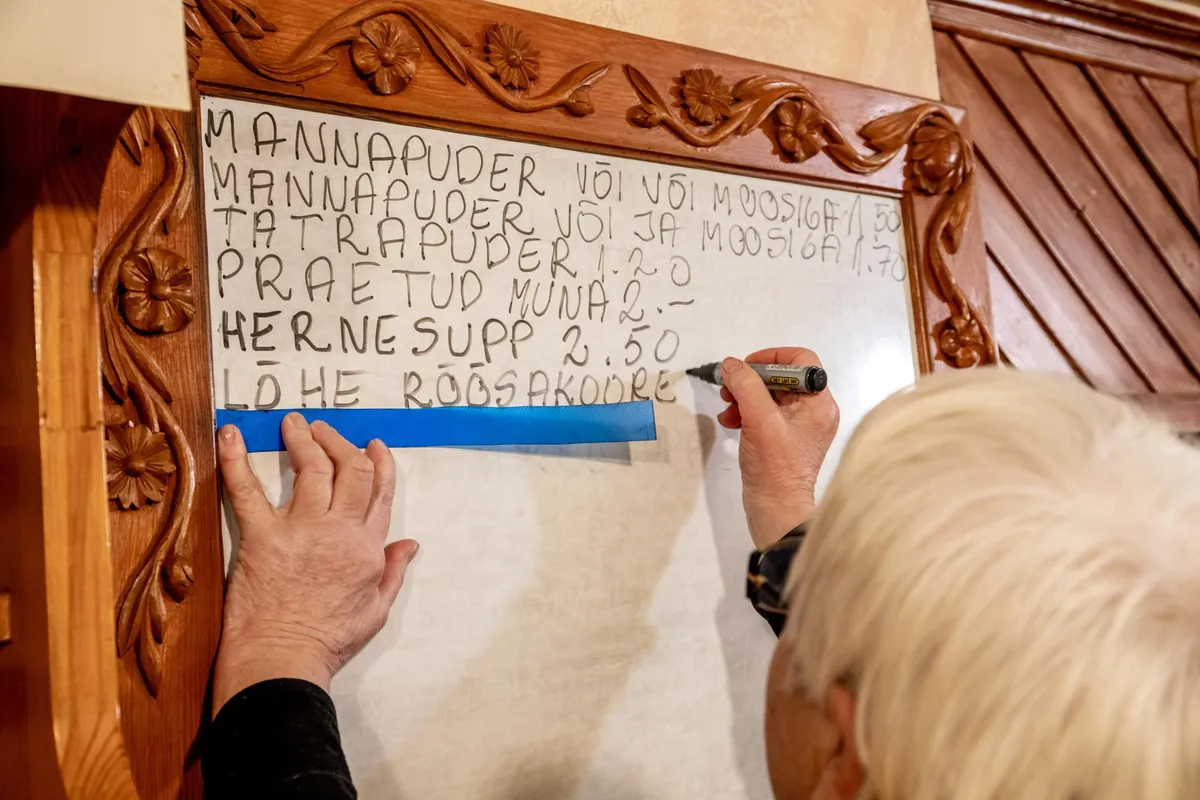 MANNAPUDER VÕI VÕI MOOSIGA 1.50
MANNAPUDER VÕI JA MOOSIGA 1.70
TATRAPUDER 1.20
PRAETUD MUNA 2.-
HERNESUPP 2.50
LÕHE RÕÕSAKOORE